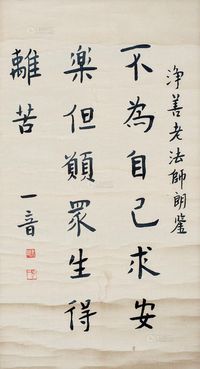 淨善老法師朗鑒
不為自己求安
樂但願眾生得
離苦
一音